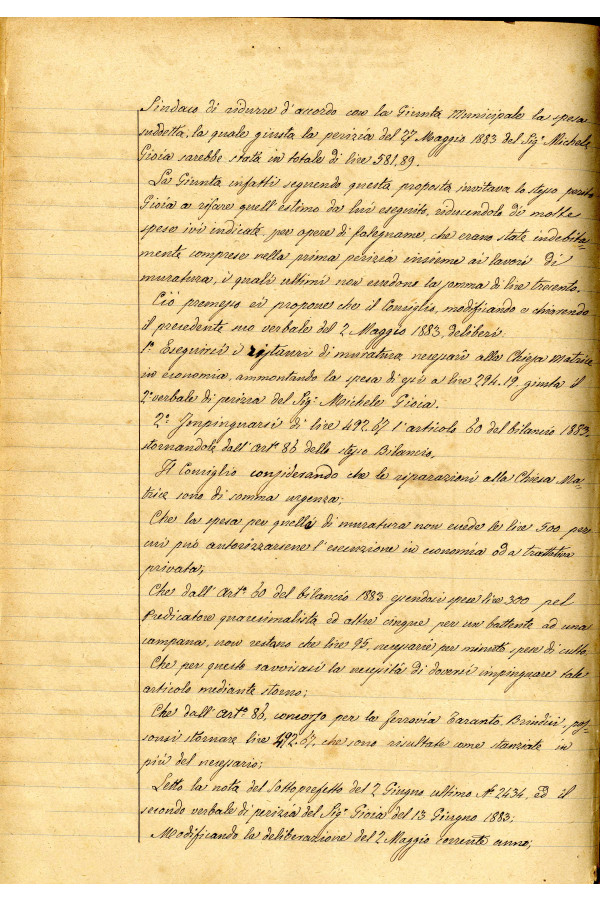 Sindaco di ridurre d'accordo con la Giunta Municipale la spesa
suddetta, la quale giusta la perizia del 27 Maggio 1883 del Sig.r Michele
Gioia sarebbe stata in totale di lire 581,89.
La Giunta infatti seguendo questa proposta invitava lo stesso perito
Gioia a rifare quell'estimo da lui eseguito, riducendolo di molte
spese ivi indicate per opere di falegname, che erano state indebita-
mente comprese nella prima perizia insieme ai lavori di
muratura, i quali ultimi non eccedono la somma di lire trecento.
Ciò premesso si propone che il Consiglio, modificando e chiarendo
il precedente suo verbale del 2 Maggio 1883, deliberi:
1.o Eseguirsi i restauri di muratura necessari alla Chiesa Matrice
in economia, ammontando la spesa di essi a lire 294.19. giusta il
2.o verbale di perizia del Sig.r Michele Gioia.
2.o Impinguarsi di lire 492.67 l'articolo 60 del bilancio 1883,
stornandole dall'art.o 86 dello stesso Bilancio,
Il Consiglio considerando che le riparazioni alla Chiesa Ma-
trice sono di somma urgenza;
Che la spesa per quelli di muratura non eccede le lire 500 per
cui può autorizzarsene l'esecuzione in economia od a trattativa
privata;
Che dall'Art.o 60 del bilancio 1883 essendosi spese lire 300 pel
Predicatore quaresimalista ed altre cinque per un battente ad una
campana, non restano che lire 95, necessarie per minute spese di culto
Che per questo ravvisasi la necessità di doversi impinguare tale
articolo mediante storno;
Che dall'Art.o 86, concorso per la ferrovia Taranto Brindisi, pos-
sonsi stornare lire 492.67, che sono risultate come stanziate in
più del necessario;
Letto la nota del Sottoprefetto del 2 Giugno ultimo N.o 2434, ed il
secondo verbale di perizia del Sig.r Gioia del 13 Giugno 1883;
Modificando la deliberazione del 2 Maggio corrente anno;